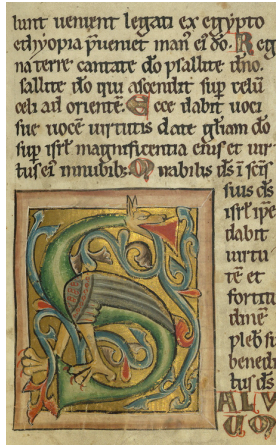 lunt uenient legati ex egypto
ethyopia p̄ueniet man' ei' do. Reg
na terre cantate do psallite dn̄o.
sallite do qui ascendit sup celū
celi ad orientē. Ecce dabit uoci
sue uocē uirtutis date gl̄iam do
sup isrl' magnificentia eius et uir
tus ei' in nubib;. M irabilis ds̄ ī scīs
suis ds̄
isrl' ipē
dabit
uirtu
tē et
fortitu
dinē
plebi su
benedi
tus ds̄
S ALV